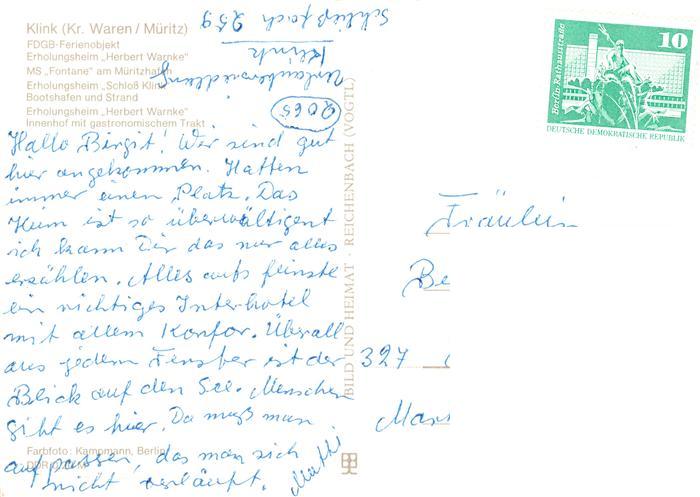 Klink (Kr. Waren / Müritz)
FDGB-Ferienobjekt
Erholungsheim „Herbert Warnke"
MS „Fontane" am Müritzhafen
Erholungsheim „Schloß Klink"
Bootshafen und Strand
Erholungsheim „Herbert Warnke"
Innenhof mit gastronomischem Trakt
Schließfach 259
Klink
Urlaubersiedlung
2065
Hallo Birgit! Wir sind gut
hier angekommen. Hatten
immer einen Platz. Das
Heim ist so überwältigent
ich kann Dir das nur alles
erzählen. Alles aufs feinste
ein richtiges Interhotel
mit allem Konfor. Überall
aus jedem Fenster ist der
Blick auf den See. Menschen
gibt es hier. Da muß man
aufpassen, das man sich
nicht verläuft. Mutti
Farbfoto: Kampmann, Berlin
BILD UND HEIMAT · REICHENBACH (VOGTL)
10
Berlin-Rathausstraße
DEUTSCHE DEMOKRATISCHE REPUBLIK
Fräulein
Be
327
Mars